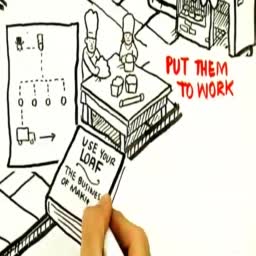 PUT THEM
TO WORK
USE YOUR
LOAF
THE BUSINESS
OF MAKI